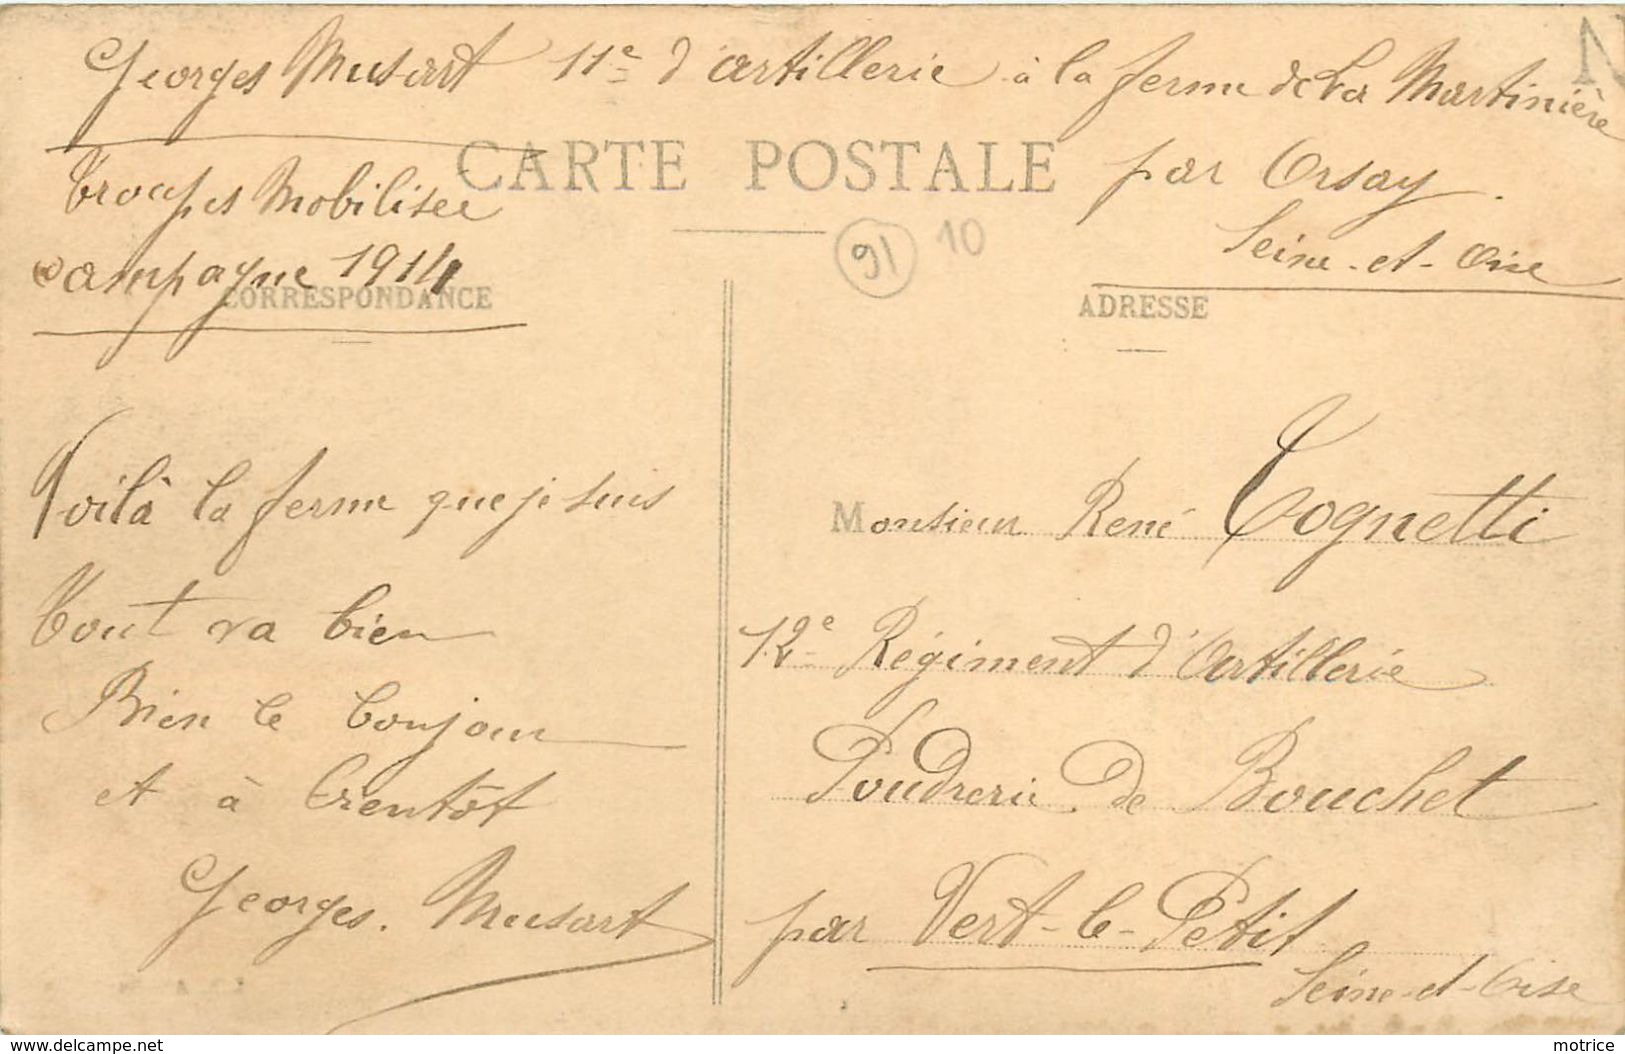 Georges Musart 11e d'artillerie à la ferme de la Martinière
par Orsay.
Seine-et-Oise
CARTE POSTALE
Troupes Mobilisée
Campagne 1914
91 10
CORRESPONDANCE
ADRESSE
Voilà la ferme que je suis
Tout va bien
Bien le bonjour
et à bientôt
Georges. Musart
Monsieur René Tognetti
12e Régiment d'Artillerie
Poudrerie de Bouchet
par Vert-le-Petit
Seine-et-Oise
N
delcampe.net
motrice